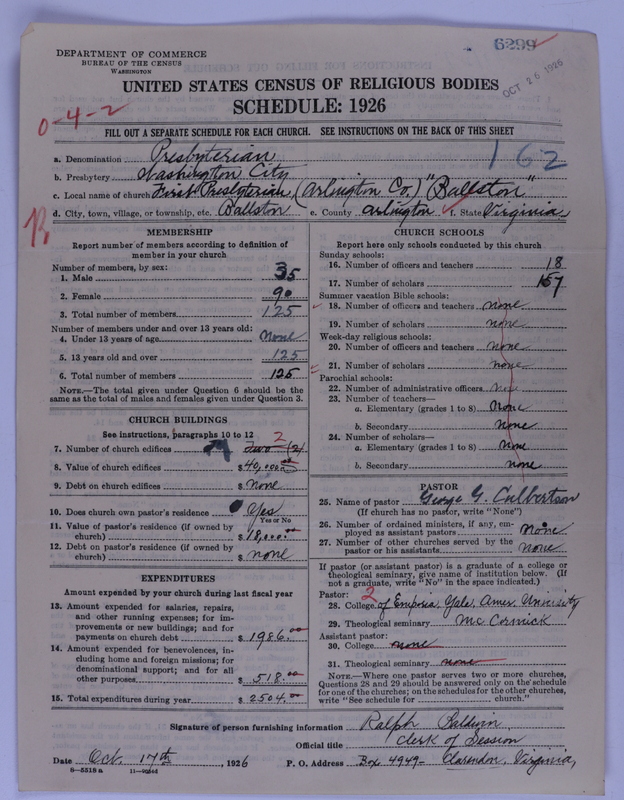 6299
OCT 26 1926
DEPARTMENT OF COMMERCE
BUREAU OF THE CENSUS
WASHINGTON
UNITED STATES CENSUS OF RELIGIOUS BODIES
SCHEDULE: 1926
0-4-2
FILL OUT A SEPARATE SCHEDULE FOR EACH CHURCH. SEE INSTRUCTIONS ON THE BACK OF THIS SHEET
162
a. Denomination Presbyterian
b. Presbytery Washington City
c. Local name of church First Presbyterian, (Arlington Co.) "Ballston"
d. City, town, village, or township, etc. Ballston e. County Arlington f. State Virginia
MEMBERSHIP
Report number of members according to definition of
member in your church
Number of members, by sex:
1. Male 35
2. Female 90
3. Total number of members 125
Number of members under and over 13 years old:
4. Under 13 years of age none
5. 13 years old and over 125
6. Total number of members 125
NOTE.—The total given under Question 6 should be the
same as the total of males and females given under Question 3.
CHURCH BUILDINGS
See instructions, paragraphs 10 to 12
2
7. Number of church edifices Two (2)
8. Value of church edifices $ 40,000.00
9. Debt on church edifices $ none
10. Does church own pastor's residence Yes
Yes or No
11. Value of pastor's residence (if owned by
church) $ 18,000.00
12. Debt on pastor's residence (if owned by
church) $ none
EXPENDITURES
Amount expended by your church during last fiscal year
13. Amount expended for salaries, repairs,
and other running expenses; for im-
provements or new buildings; and for
payments on church debt $ 1986.00
14. Amount expended for benevolences, in-
cluding home and foreign missions; for
denominational support; and for all
other purposes $ 518.00
15. Total expenditures during year $ 2504.00
CHURCH SCHOOLS
Report here only schools conducted by this church
Sunday schools:
16. Number of officers and teachers 18
17. Number of scholars 157
Summer vacation Bible schools:
18. Number of officers and teachers none
19. Number of scholars none
Week-day religious schools:
20. Number of officers and teachers none
21. Number of scholars none
Parochial schools:
22. Number of administrative officers none
23. Number of teachers—
a. Elementary (grades 1 to 8) None
b. Secondary None
24. Number of scholars—
a. Elementary (grades 1 to 8) none
b. Secondary none
PASTOR
25. Name of pastor George G. Culbertson
(If church has no pastor, write "None")
26. Number of ordained ministers, if any, em-
ployed as assistant pastors none
27. Number of other churches served by the
pastor or his assistants none
If pastor (or assistant pastor) is a graduate of a college or
theological seminary, give name of institution below. (If
not a graduate, write "No" in the space indicated.)
Pastor: 2
28. College of Emporia, Yale, Amer. University
29. Theological seminary McCormick
Assistant pastor:
30. College none
31. Theological seminary none
NOTE.—Where one pastor serves two or more churches,
Questions 28 and 29 should be answered only on the schedule
for one of the churches; on the schedules for the other churches,
write "See schedule for church."
Signature of person furnishing information Ralph Baldwin
Official title Clerk of Session
Date Oct. 17th, 1926 P. O. Address Box 4949- Clarendon, Virginia,
8-5518a